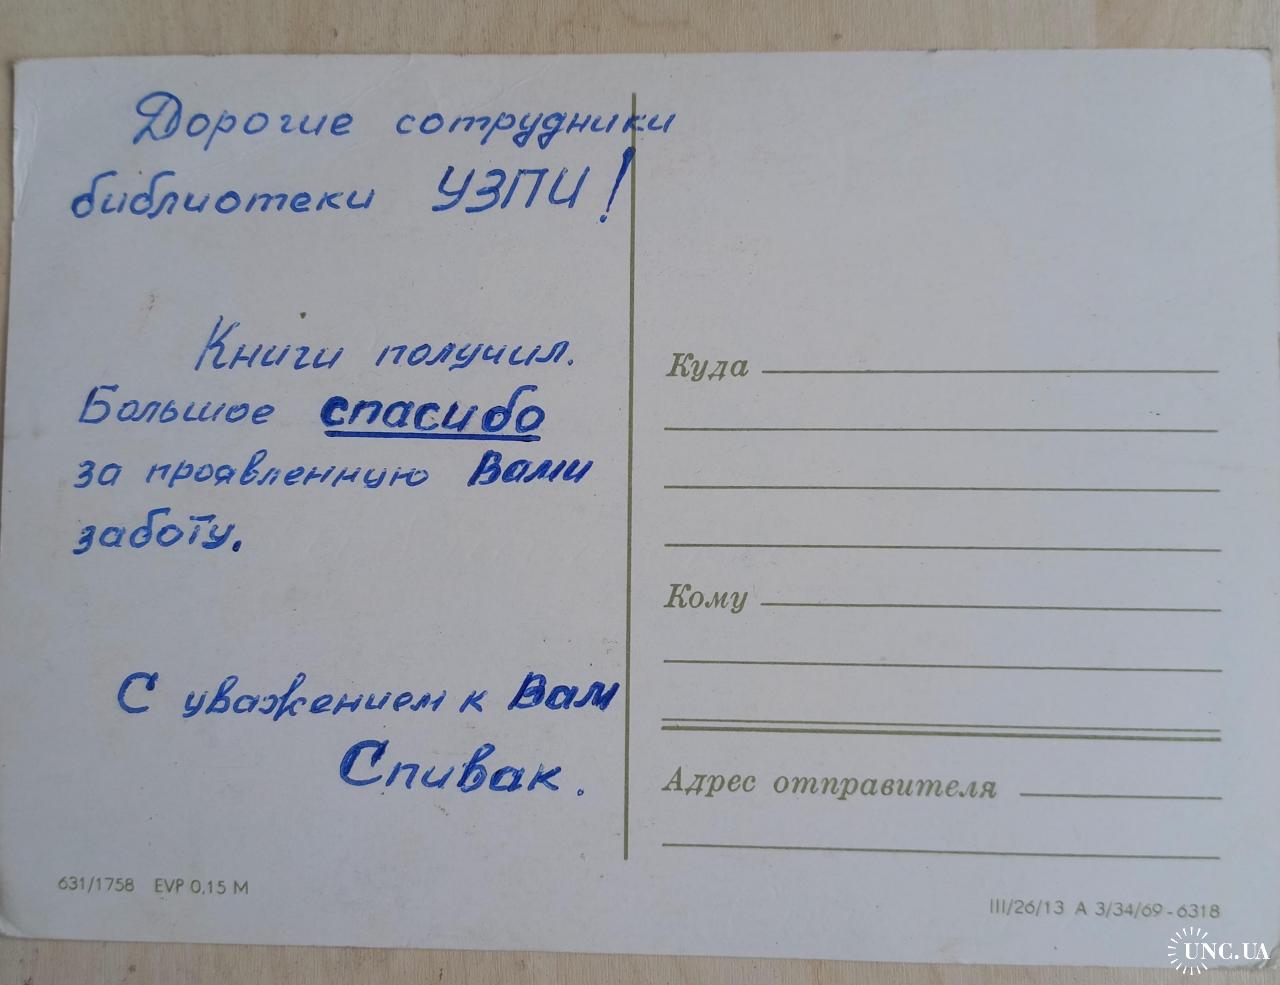 Дорогие сотрудники
библиотеки УЗПИ!
Книги получил.
Большое спасибо
за проявленную Вами
заботу.
С уважением к Вам
Спивак.
631/1758 EVP 0,15 M
Куда
Кому
Адрес отправителя
III/26/13 A 3/34/69-6318
UNC.UA